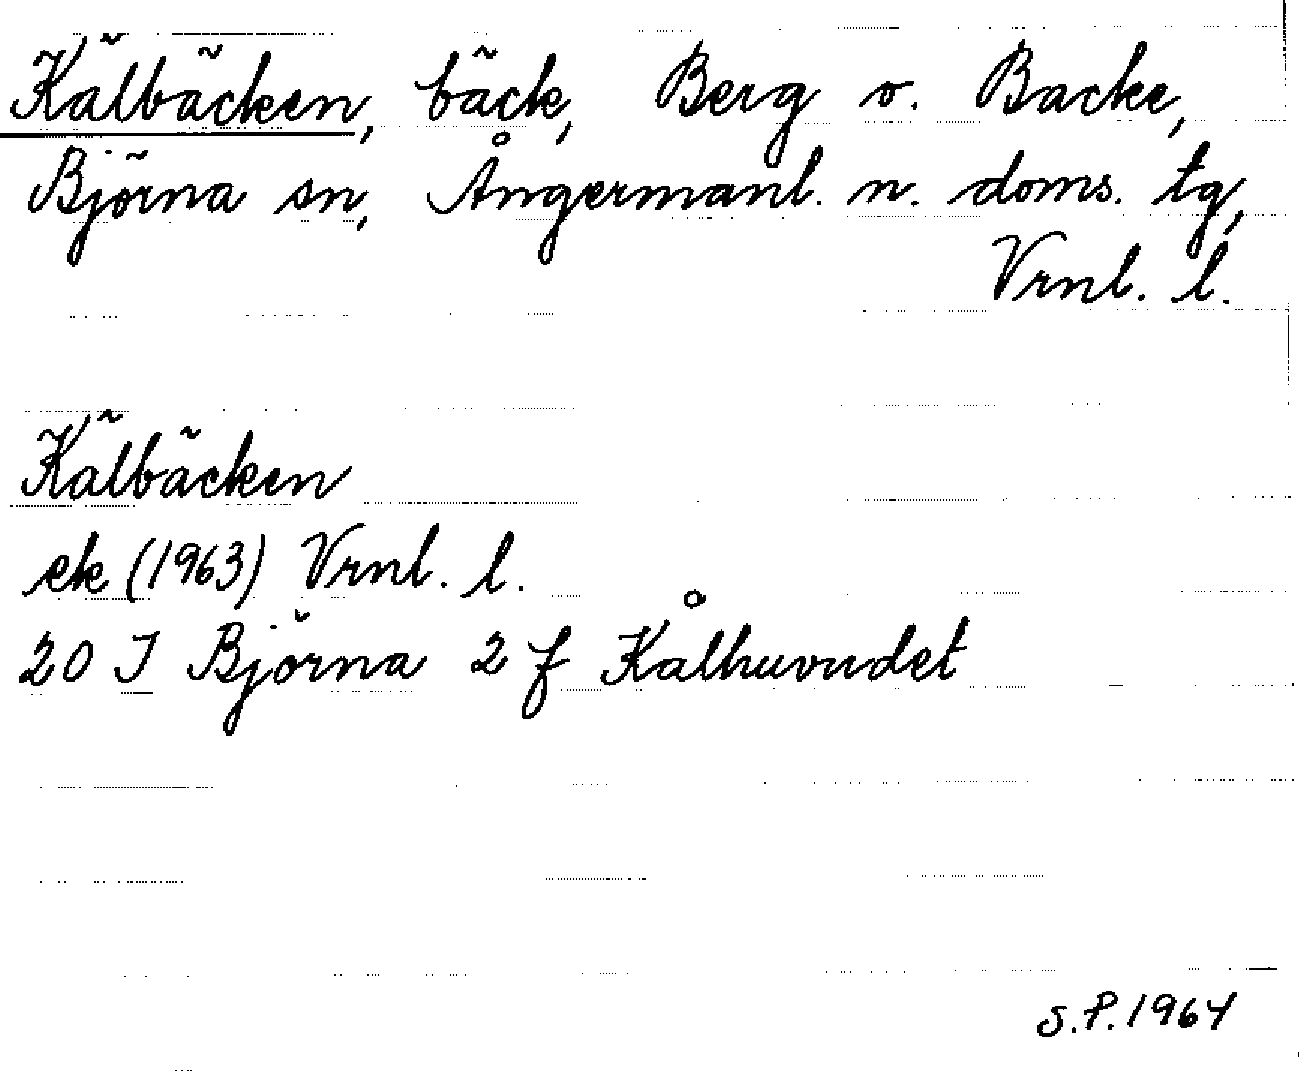 Kälbäcken, bäck, Berg o. Backe,
Björna sn, Ångermanl. n. doms. tg,
Vrnl. l.
Kälbäcken
ek (1963) Vrnl. l.
20 I Björna 2 f Kålhuvudet
S.P. 1964